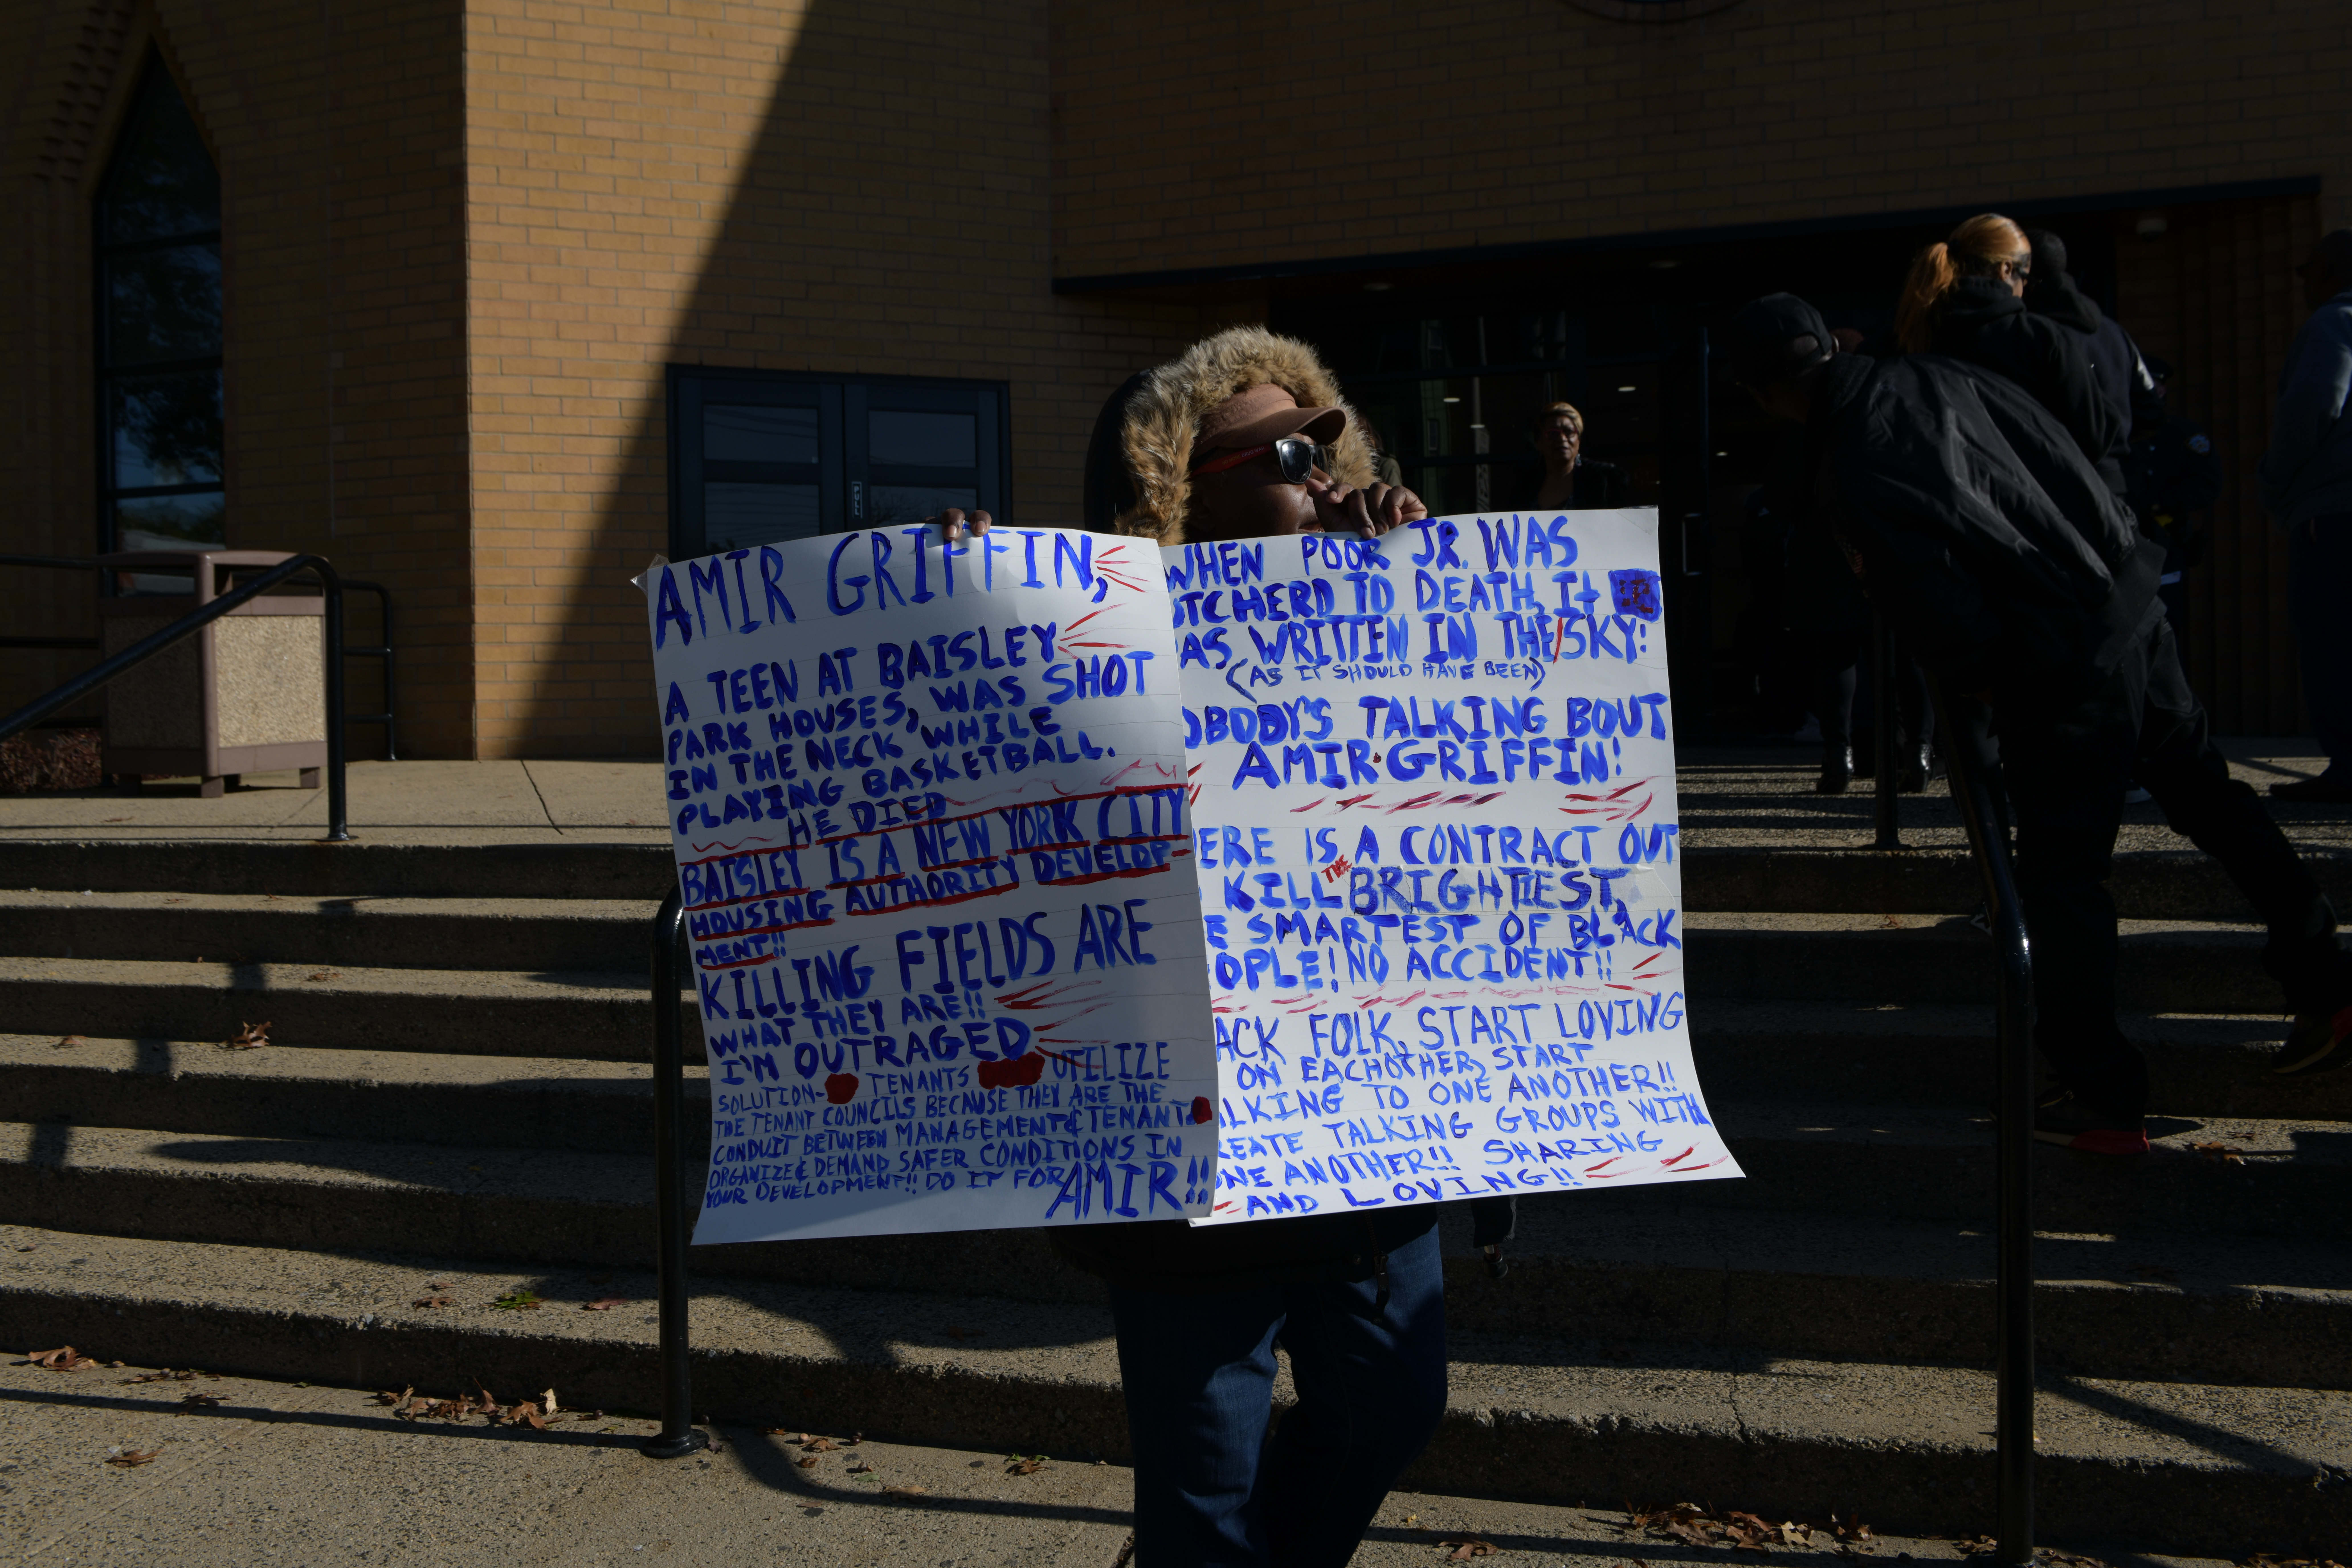 AMIR GRIFFIN,
A TEEN AT BAISLEY
PARK HOUSES, WAS SHOT
IN THE NECK WHILE
PLAYING BASKETBALL.
HE DIED
BAISLEY IS A NEW YORK CITY
HOUSING AUTHORITY DEVELOP-
MENT!!
KILLING FIELDS ARE
WHAT THEY ARE!!
I'M OUTRAGED
SOLUTION- TENANTS UTILIZE
THE TENANT COUNCILS BECAUSE THEY ARE THE
CONDUIT BETWEEN MANAGEMENT & TENANT
ORGANIZE & DEMAND SAFER CONDITIONS IN
YOUR DEVELOPMENT!! DO IT FOR AMIR!!
WHEN POOR JR. WAS
TCHERD TO DEATH, It
AS WRITTEN IN THE/SKY:
(AS IT SHOULD HAVE BEEN)
OBODY'S TALKING BOUT
AMIR GRIFFIN!
ERE IS A CONTRACT OUT
KILL THE BRIGHTIEST,
E SMARTEST OF BLACK
OPLE! NO ACCIDENT!!
ACK FOLK, START LOVING
ON EACHOTHER, START
ALKING TO ONE ANOTHER!!
REATE TALKING GROUPS WITH
ONE ANOTHER!! SHARING
AND LOVING!!
PULL